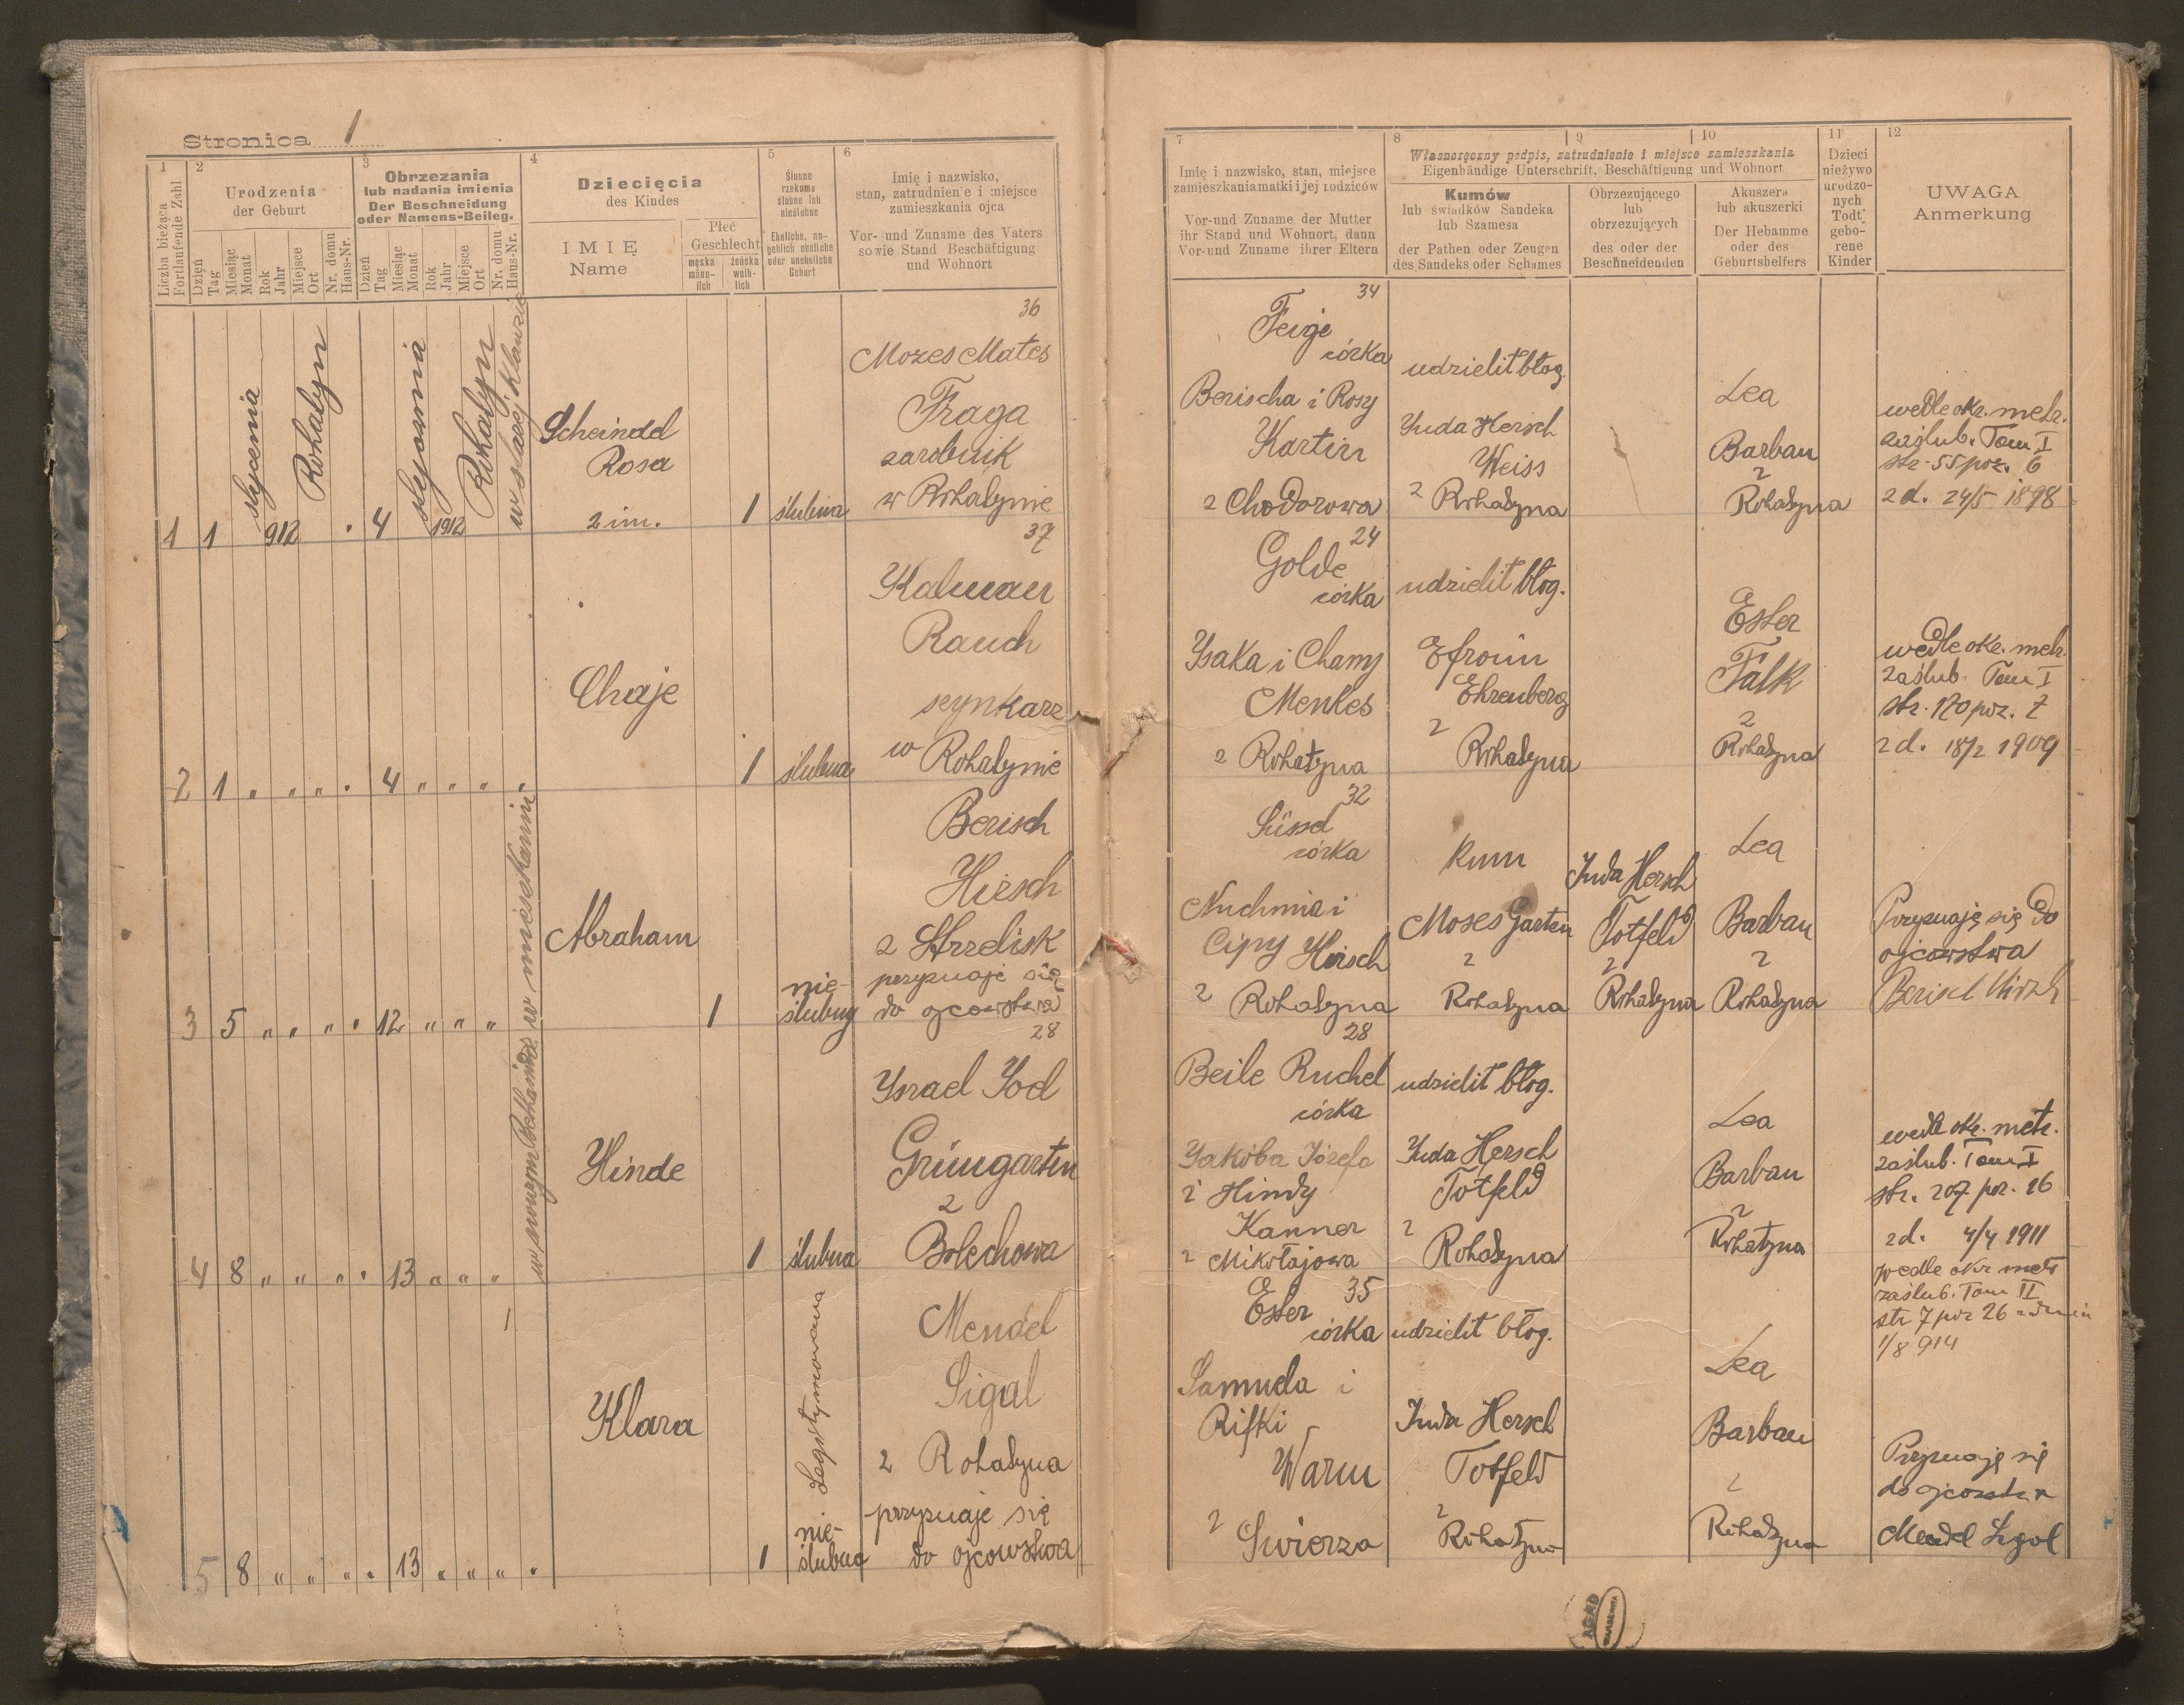 Stronica 1
1
Liczba bieżąca
Fortlaufende Zahl
2
Urodzenia
der Geburt
Dzień
Tag
Miesiąc
Monat
Rok
Jahr
Miejsce
Ort
Nr. domu
Haus-Nr.
3
Obrzezania
lub nadania imienia
Der Beschneidung
oder Namens-Beileg.
Dzień
Tag
Miesiąc
Monat
Rok
Jahr
Miejsce
Ort
Nr. domu
Haus-Nr.
4
Dziecięcia
des Kindes
IMIĘ
Name
Płeć
Geschlecht
męska
männ-
lich
żeńska
weib-
lich
5
Ślubne
rzekomo
ślubne lub
nieślubne
Eheliche, an-
geblich eheliche
oder uneheliche
Geburt
6
Imię i nazwisko,
stan, zatrudnienie i miejsce
zamieszkania ojca
Vor- und Zuname des Vaters
sowie Stand Beschäftigung
und Wohnort
7
Imię i nazwisko, stan, miejsce
zamieszkania matki i jej rodziców
Vor-und Zuname der Mutter
ihr Stand und Wohnort, dann
Vor-und Zuname ihrer Eltern
8
9
10
Własnoręczny podpis, zatrudnienie i miejsce zamieszkania
Eigenhändige Unterschrift, Beschäftigung und Wohnort
Kumów
lub świadków Sandeka
lub Szamesa
der Pathen oder Zeugen
des Sandeks oder Schames
Obrzezującego
lub
obrzezujących
des oder der
Beschneidenden
Akuszera
lub akuszerki
Der Hebamme
oder des
Geburtshelfers
11
Dzieci
nieżywo
urodzo-
nych
Todt-
gebo-
rene
Kinder
12
UWAGA
Anmerkung
1 1 stycznia 912 Rohatyn
4 stycznia 1912 Rohatyn
Scheindel
Rosa
2 im.
1
ślubna
36
Mozes Mates
Fraga
zarobnik
w Rohatynie
34
Feige
córka
Berischa i Rosy
Kartin
z Chodorowa
udzielił błog.
Juda Hersch
Weiss
z Rohatyna
Lea
Barban
z
Rohatyna
wedle okr. metr.
zaślub. Tom I
str. 55 poz. 6
z d. 24/5 1898
2 1 " " " 4 " " " "
Chaje
1
ślubna
37
Kalman
Rauch
szynkarz
w Rohatynie
24
Golde
córka
Isaka i Chany
Menkes
z Rohatyna
udzielił błog.
Efroim
Ehrenberg
z
Rohatyna
Ester
Falk
z
Rohatyna
wedle okr. metr.
zaślub. Tom I
str. 170 poz. 7
z d. 18/2 1909
3 5 " " " 12 " " "
w mieszkaniu
Abraham
1
nie-
ślubny
Berisch
Hirsch
z Strzelisk
przyznaje się
do ojcowstwa
32
Süssel
córka
Nuchmia i
Cipy Hirsch
z Rohatyna
kum
Moses Garten
z
Rohatyna
Juda Hersch
Totfeld
z
Rohatyna
Lea
Barban
z
Rohatyna
Przyznaję się do
ojcowstwa
Berisch Hirsch
4 8 " " " 13 " " "
Hinde
1
ślubna
28
Israel Joel
Grüngarten
z
Bolechowa
28
Beile Ruchel
córka
Jakóba Józefa
i Hindy
Kanner
z Mikołajowa
udzielił błog.
Juda Hersch
Totfeld
z
Rohatyna
Lea
Barban
z
Rohatyna
wedle okr. metr.
zaślub. Tom I
str. 207 poz. 16
z d. 4/4 1911
5 8 " " " 13 " " "
Klara
1
Legitymowana
nie-
ślubna
Mendel
Sigal
z Rohatyna
przyznaje się
do ojcowstwa
35
Ester
córka
Samuela i
Rifki
Warm
z Swierza
udzielił błog.
Juda Hersch
Totfeld
z
Rohatyna
Lea
Barban
z
Rohatyna
wedle okr metr
zaślub. Tom II
str 7 poz 26
1/8 914
Przyznaję się
do ojcostwa
Mendel Sigal
AGAD
WARSZAWA